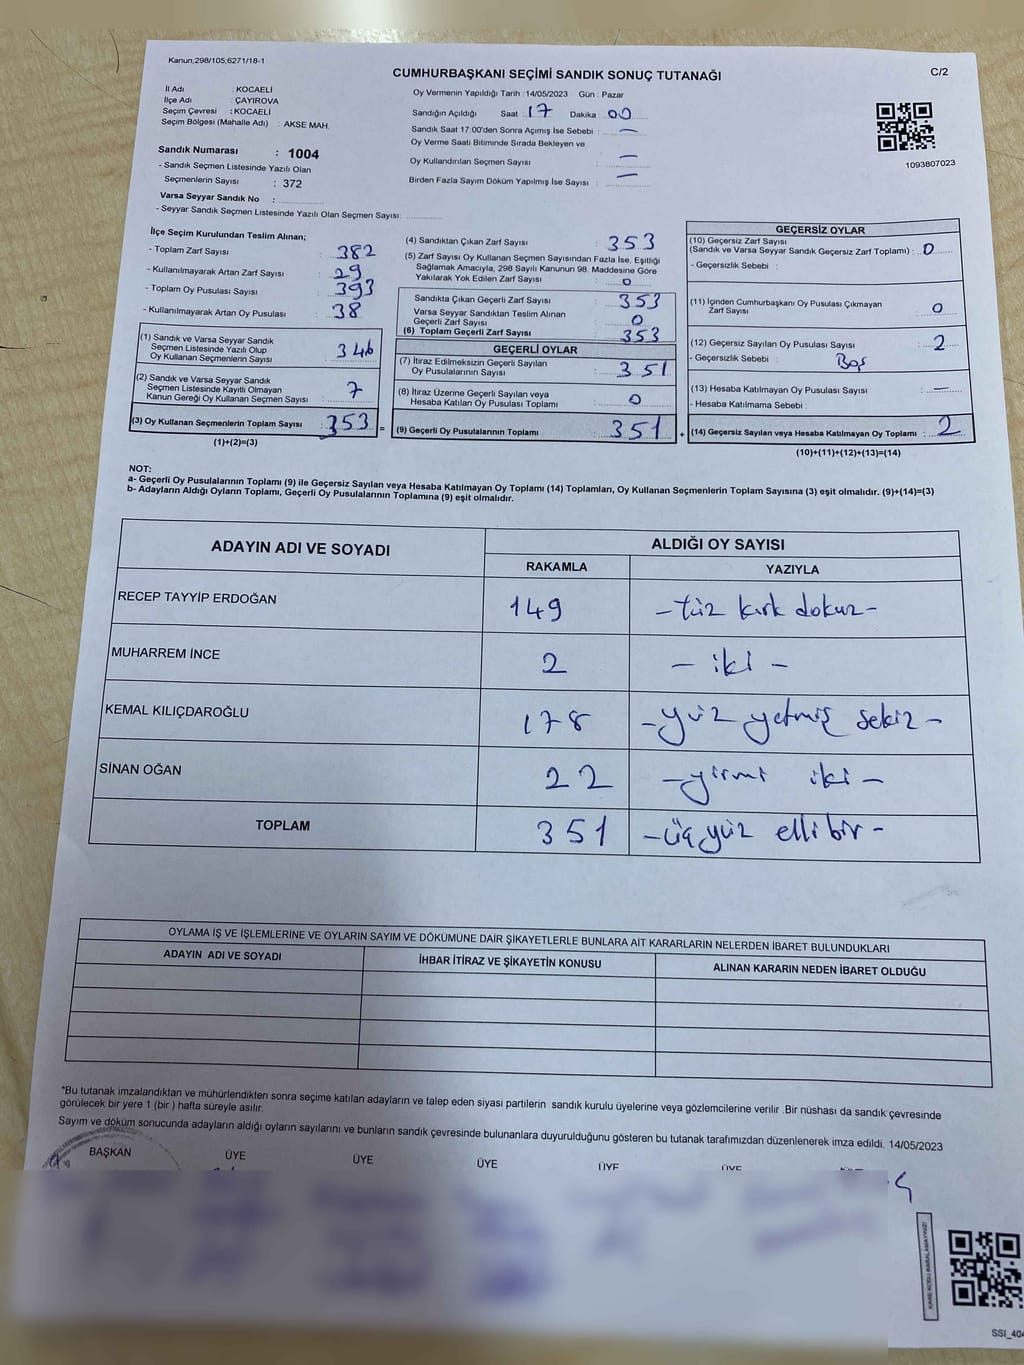 Kanun;298/105,6271/18-1
CUMHURBAŞKANI SEÇİMİ SANDIK SONUÇ TUTANAĞI
C/2
İl Adı : KOCAELİ
İlçe Adı : ÇAYIROVA
Seçim Çevresi : KOCAELİ
Seçim Bölgesi (Mahalle Adı) : AKSE MAH.
Sandık Numarası : 1004
- Sandık Seçmen Listesinde Yazılı Olan
Seçmenlerin Sayısı : 372
Varsa Seyyar Sandık No :
- Seyyar Sandık Seçmen Listesinde Yazılı Olan Seçmen Sayısı:
Oy Vermenin Yapıldığı Tarih : 14/05/2023 Gün : Pazar
Sandığın Açıldığı Saat : 17 Dakika : 00
Sandık Saat 17:00'den Sonra Açımış İse Sebebi : —
Oy Verme Saati Bitiminde Sırada Bekleyen ve
Oy Kullandırılan Seçmen Sayısı : —
Birden Fazla Sayım Döküm Yapılmış İse Sayısı : —
1093807023
İlçe Seçim Kurulundan Teslim Alınan;
- Toplam Zarf Sayısı : 382
- Kullanılmayarak Artan Zarf Sayısı : 29
- Toplam Oy Pusulası Sayısı : 393
- Kullanılmayarak Artan Oy Pusulası : 38
(1) Sandık ve Varsa Seyyar Sandık
Seçmen Listesinde Yazılı Olup
Oy Kullanan Seçmenlerin Sayısı : 346
(2) Sandık ve Varsa Seyyar Sandık
Seçmen Listesinde Kayıtlı Olmayan
Kanun Gereği Oy Kullanan Seçmen Sayısı : 7
(3) Oy Kullanan Seçmenlerin Toplam Sayısı : 353 =
(1)+(2)=(3)
(4) Sandıktan Çıkan Zarf Sayısı : 353
(5) Zarf Sayısı Oy Kullanan Seçmen Sayısından Fazla İse, Eşitliği
Sağlamak Amacıyla, 298 Sayılı Kanunun 98. Maddesine Göre
Yakılarak Yok Edilen Zarf Sayısı : 0
Sandıkta Çıkan Geçerli Zarf Sayısı : 353
Varsa Seyyar Sandıktan Teslim Alınan
Geçerli Zarf Sayısı : 0
(6) Toplam Geçerli Zarf Sayısı : 353
GEÇERLİ OYLAR
(7) İtiraz Edilmeksizin Geçerli Sayılan
Oy Pusulalarının Sayısı : 351
(8) İtiraz Üzerine Geçerli Sayılan veya
Hesaba Katılan Oy Pusulası Toplamı : 0
(9) Geçerli Oy Pusulalarının Toplamı : 351 +
GEÇERSİZ OYLAR
(10) Geçersiz Zarf Sayısı
(Sandık ve Varsa Seyyar Sandık Geçersiz Zarf Toplamı) : 0
- Geçersizlik Sebebi :
(11) İçinden Cumhurbaşkanı Oy Pusulası Çıkmayan
Zarf Sayısı : 0
(12) Geçersiz Sayılan Oy Pusulası Sayısı : 2
- Geçersizlik Sebebi : Boş
(13) Hesaba Katılmayan Oy Pusulası Sayısı : —
- Hesaba Katılmama Sebebi :
(14) Geçersiz Sayılan veya Hesaba Katılmayan Oy Toplamı : 2
(10)+(11)+(12)+(13)=(14)
NOT:
a- Geçerli Oy Pusulalarının Toplamı (9) ile Geçersiz Sayılan veya Hesaba Katılmayan Oy Toplamı (14) Toplamları, Oy Kullanan Seçmenlerin Toplam Sayısına (3) eşit olmalıdır. (9)+(14)=(3)
b- Adayların Aldığı Oyların Toplamı, Geçerli Oy Pusulalarının Toplamına (9) eşit olmalıdır.
ADAYIN ADI VE SOYADI ALDIĞI OY SAYISI
RAKAMLA YAZIYLA
RECEP TAYYİP ERDOĞAN 149 -yüz kırk dokuz-
MUHARREM İNCE 2 - iki -
KEMAL KILIÇDAROĞLU 178 -yüz yetmiş sekiz-
SİNAN OĞAN 22 -yirmi iki-
TOPLAM 351 -üç yüz elli bir-
OYLAMA İŞ VE İŞLEMLERİNE VE OYLARIN SAYIM VE DÖKÜMÜNE DAİR ŞİKAYETLERLE BUNLARA AİT KARARLARIN NELERDEN İBARET BULUNDUKLARI
ADAYIN ADI VE SOYADI İHBAR İTİRAZ VE ŞİKAYETİN KONUSU ALINAN KARARIN NEDEN İBARET OLDUĞU
*Bu tutanak imzalandıktan ve mühürlendikten sonra seçime katılan adayların ve talep eden siyasi partilerin sandık kurulu üyelerine veya gözlemcilerine verilir .Bir nüshası da sandık çevresinde
görülecek bir yere 1 (bir ) hafta süreyle asılır.
Sayım ve döküm sonucunda adayların aldığı oyların sayılarını ve bunların sandık çevresinde bulunanlara duyurulduğunu gösteren bu tutanak tarafımızdan düzenlenerek imza edildi. 14/05/2023
BAŞKAN ÜYE ÜYE ÜYE ÜYE ÜYE
KARE KODU KARALAMAYINIZ!